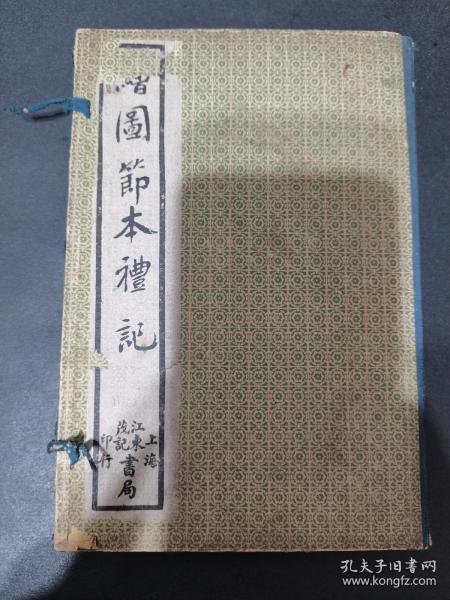 圖節本禮記
上海
江東
茂記
書局
印行
孔夫子旧书网
www.kongfz.com